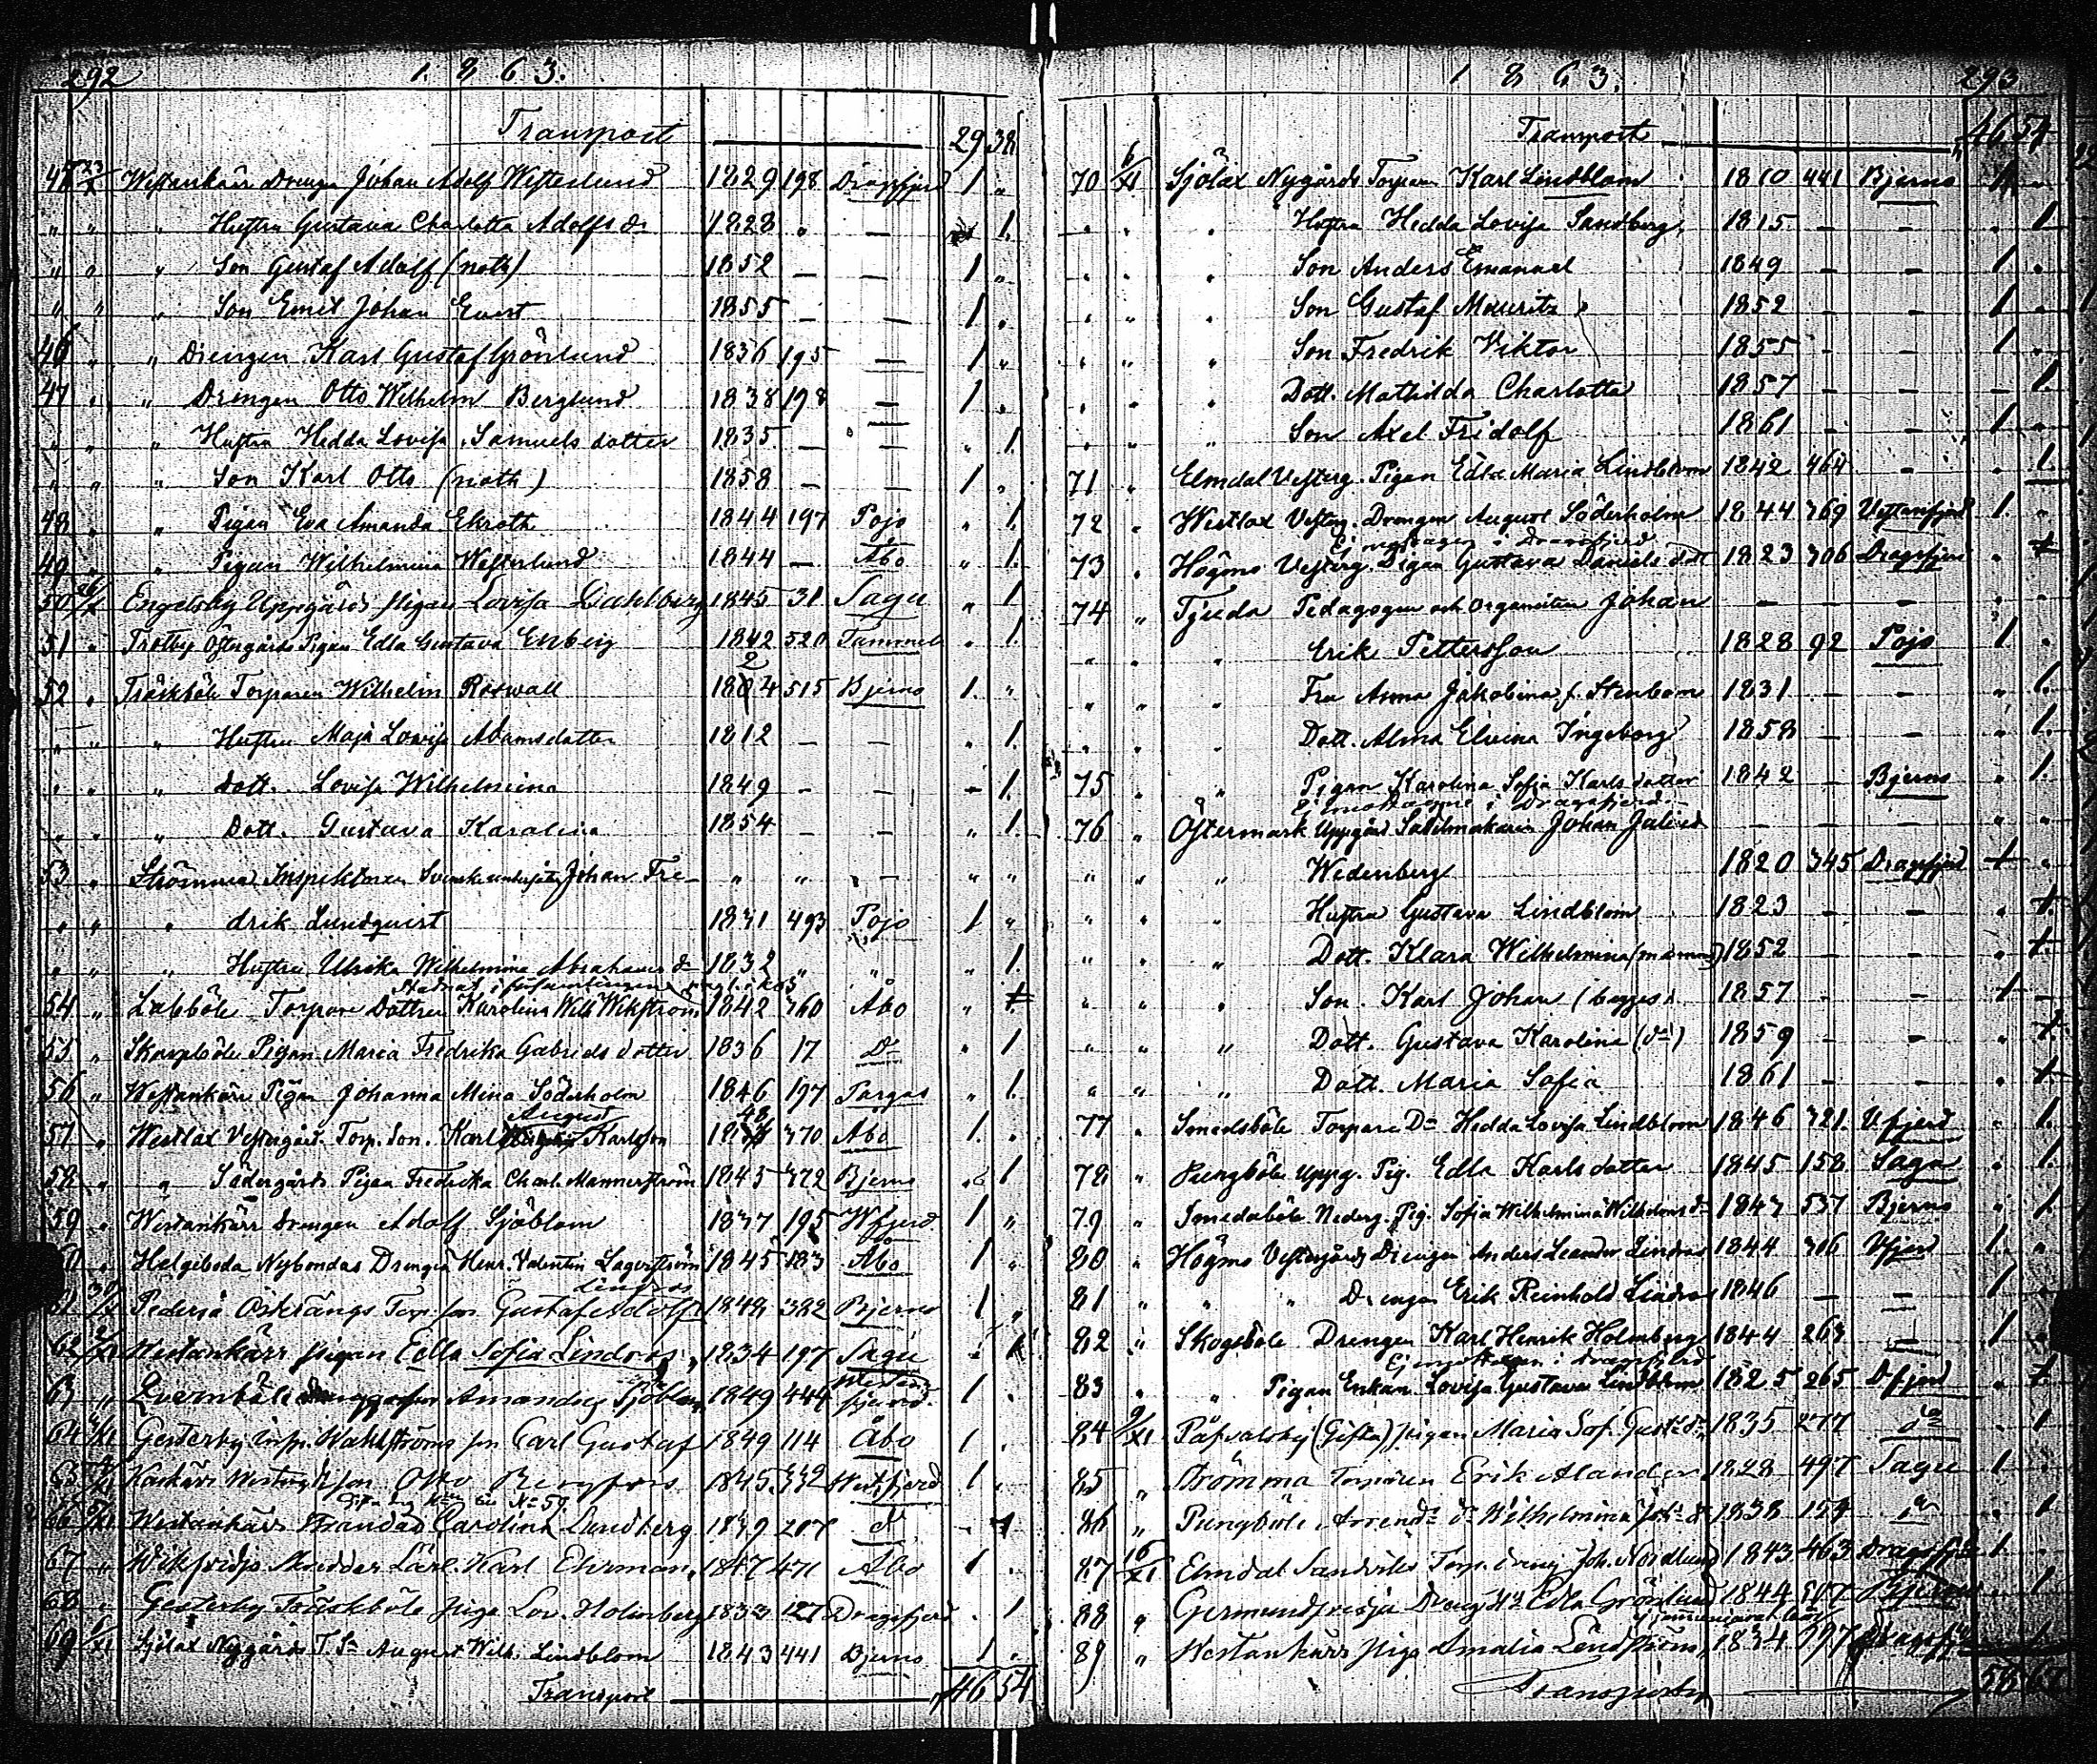 292 1863.
Transport 29 38
45 23/X Westankärr Drengen Johan Adolf Westerlund 1829 198 Dragsfjerd 1 "
" " " Hustru Gustava Charlotta Adolfs dr 1828 " — 1.
" " " Son Gustaf Adolf (noth) 1852 — — 1 "
" " " Son Emil Johan Evert 1855 — — 1 "
46 " " Drengen Karl Gustaf Grönlund 1836 195 — 1 "
47 " " Drengen Otto Wilhelm Berglund 1838 198 — 1 "
" " " Hustru Hedda Lovisa Samuels dotter 1835 — — " 1.
" " " Son Karl Otto (noth) 1858 — — 1 "
48 " " Pigan Eva Amanda Ekroth 1844 197 Pojo " 1.
49 " " Pigan Wilhelmina Westerlund 1844 — Åbo " 1.
50 26/X Engelsby Uppgårds pigan Lovisa Dahlberg 1845 31 Sagu " 1
51 " Trotby Östergårds Pigan Edla Gustava Enberg 1842 520 Tammela " 1.
52 " Träskböle Torparen Wilhelm Roswall 1824 515 Bjerno 1. "
" " " Hustru Maja Lovisa Adamsdotter 1812 — — " 1.
" " " Dott. Lovisa Wilhelmina 1849 — — 1.
" " " Dott. Gustava Karolina 1854 — — " 1.
53 " Strömma Inspektoren Svenske undersåten Johan Fre- " " — " "
" " " drik Lundquist 1831 493 Pojo 1 "
" " " Hustru Ulrika Wilhelmina Abrahams dr 1832 " " " 1.
54 " Labböle Torpare Dottren Karolina Wilh. Wikström 1842 360 Åbo " 1.
55 " Skarpböle Pigan Maria Fredrika Gabriels dotter 1836 17 Do " 1
56 " Westankärr Pigan Johanna Mina Söderholm 1846 197 Pargas " 1.
August
57 " Westlax Vestergård Torp. Son. Karl Karlsson 48 370 Åbo 1. "
58 " " Södergårds Pigan Fredrika Charl. Mannerström 1845 372 Bjerno " 1
59 " Westankärr Drengen Adolf Sjöblom 1837 195 Wfjerd 1 "
" Helgeboda Nybondas Drengen Henr. Valentin Lagerström 1845 183 Åbo 1 "
Lindroos
Pedersjö Torp. son Gustaf Adolf 1848 382 Bjerno 1 "
62 2/XI Westankärr pigan Edla Sofia Lindroos 1834 197 Sagu 1
63 " Qvernböle Amandus Sjöblom 1849 444 Westanfjerd 1 "
64 Gesterby insp. Wahlströms son Carl Gustaf 1849 114 Åbo 1 "
65 son Otto 1845 Westfjerd 1 "
66 Westankärr Carolina Lundberg 1839 207 d 1
67 " Wiksvidja Skräddar Lärl. Karl Ehrman 1847 471 Åbo 1 "
68 " Gesterby Träskböle piga Lov. Holmberg 1833 127 Dragsfjerd " 1
69 6/XI Sjölax Nygårds T. Sn August Wilh. Lindblom 1843 441 Bjerno 1 "
Transport 46 54
1863. 293
Transport 46 54
70 6/XI Sjölax Nygårds Torparen Karl Lindblom 1810 441 Bjerno 1 "
" " " Hustru Hedda Lovisa Sandberg 1815 — — " 1
" " " Son Anders Emanuel 1849 — — 1 "
" " " Son Gustaf Mauritz 1852 — — 1 "
" " " Son Fredrik Viktor 1855 — — 1 "
" " " Dott. Mathilda Charlotta 1857 — — — 1.
" " " Son Axel Fridolf 1861 — — 1 "
71 " Elmdal Vesterg. Pigan Edla Maria Lindblom 1842 464 — " 1.
72 " Westlax Vesterg. Drengen August Söderholm 1844 369 Vestanfjerd 1 "
Ej mottagen i Dragsfjerd
73 " Högmo Vesterg. Pigan Gustava Daniels dott 1823 306 Dragsfjerd " 1
74 " Tjuda Pedagogen och Organisten Johan — — — " "
" " " Erik Pettersson 1828 92 Pojo 1 "
" " " Fru Anna Jakobina f. Stenbom 1831 — — " 1.
" " " Dott. Alma Elvina Ingeborg 1858 — — " 1.
75 " " Pigan Karolina Sofia Karls dotter 1842 — Bjerno " 1.
Ej mottagne i Dragsfjerd
76 " Östermark Uppgård Sadelmakaren Johan Julius — — — " "
" " " Wedenberg 1820 345 Dragsfjerd 1 "
" " " Hustru Gustava Lindblom 1823 — — " 1.
" " " Dott. Klara Wilhelmina 1852 — — " 1.
" " " Son. Karl Johan (begges) 1857 — — 1 —
" " " Dott. Gustava Karolina (do) 1859 — — " 1.
" " " Dott. Maria Sofia 1861 — — " 1
77 " Smedsböle Torpare Dr Hedda Lovisa Lindblom 1846 321. Vfjerd " 1.
78 " Pungböle Uppg. Pig. Edla Karls dotter 1845 158 Sagu " 1.
79 " Smedsböle Nederg. Pig. Sofia Wilhelmina Wilhelms dr 1843 537 Bjerno " 1.
80 " Högmo Vestergårds Drengen Anders Leander Lindros 1844 306 Vfjerd 1. "
81 " " " Drengen Erik Reinhold Lindros 1846 — — 1 "
82 " Skogsböle Drengen Karl Henrik Holmberg 1844 263 — 1 "
Ej mottagen i Dragsfjerd
83 " " Pigan Enkan Lovisa Gustava Lindblom 1825 265 Dfjerd " 1.
84 9/XI Påfvalsby (Gifta) pigan Maria Sof. Gustdr 1835 277 do " 1
85 " Strömma Torparen Erik Alander 1828 497 Sagu 1 "
86 " Pungböle Arrendr dr Wilhelmina Joh. dr 1838 154 do " 1
87 16/XI Elmdal Sandviks Torp. dreng Joh. Nordlund 1843 463 Dragsfjerd 1. "
88 " Germundsvidja Dreng Edla Grönlund 1844 507 Bjerno " 1
89 " Westankärr piga Amalia Lindström 1834 197 Dragsfjerd 1
Transport 58 67